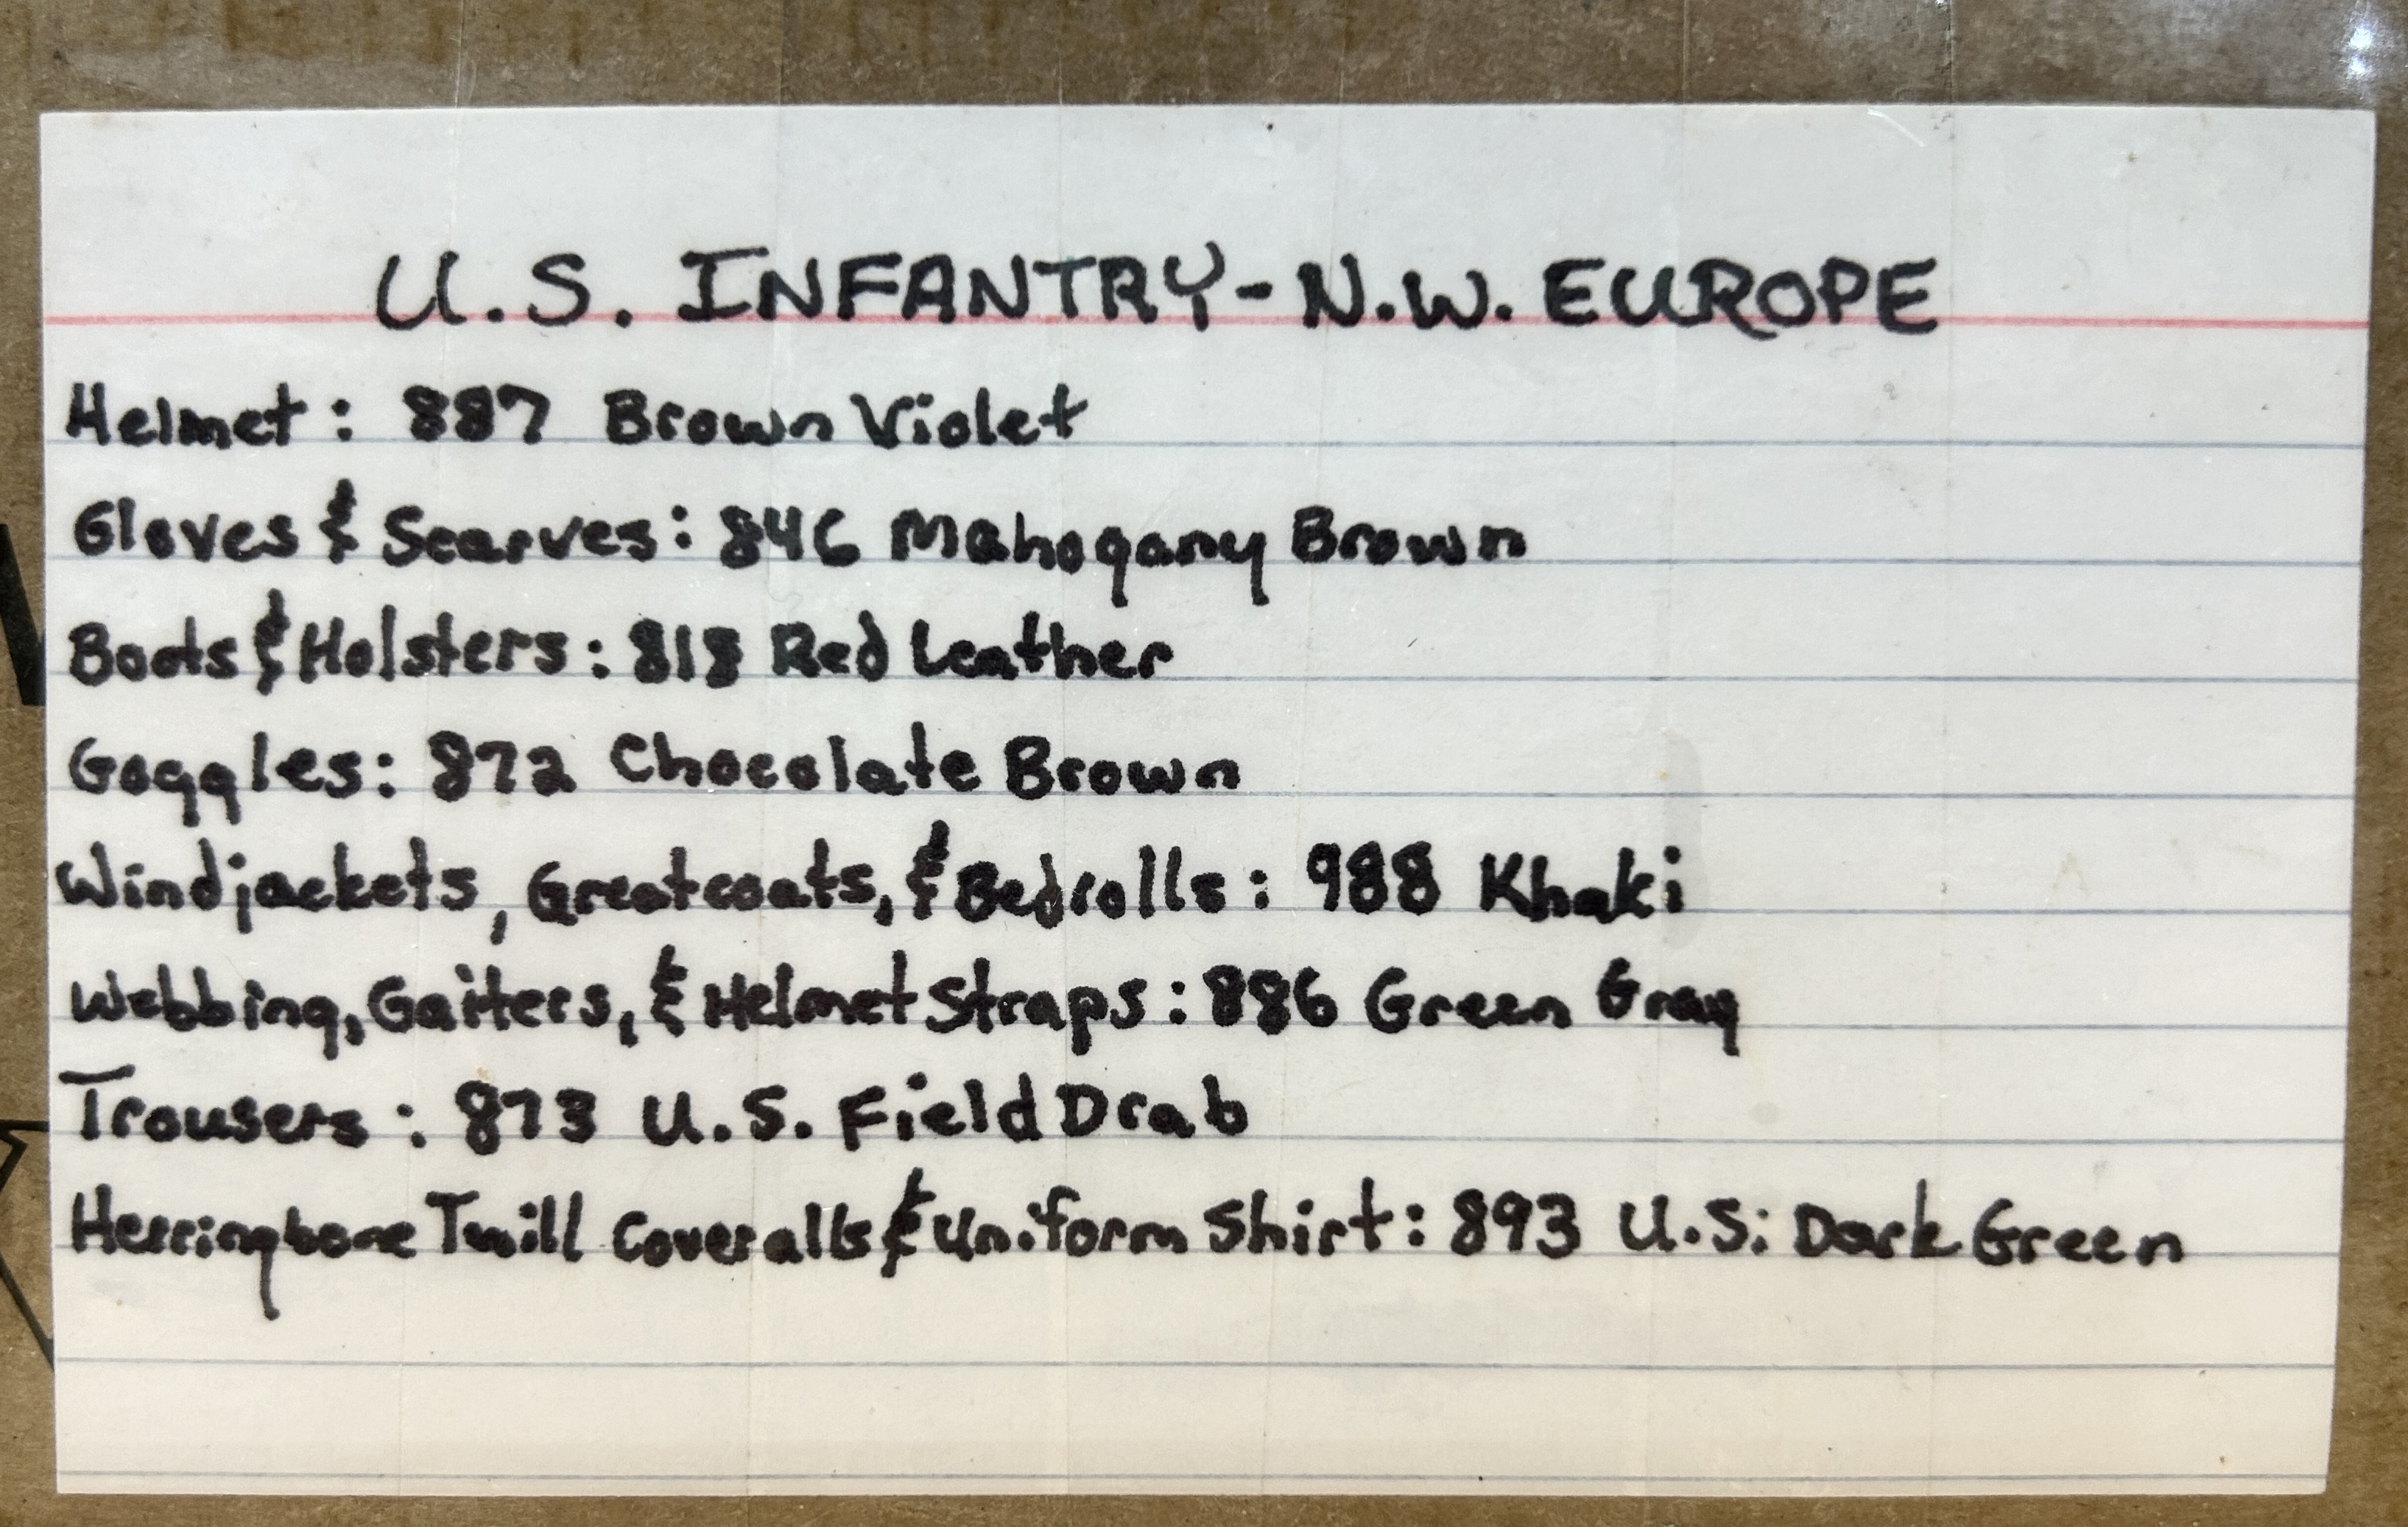 U.S. INFANTRY-N.W. EUROPE
Helmet: 887 Brown Violet
Gloves & Scarves: 846 Mahogany Brown
Boots & Holsters: 818 Red Leather
Goggles: 872 Chocolate Brown
Windjackets, Greatcoats, & Bedrolls: 988 Khaki
Webbing, Gaiters, & Helmet Straps: 886 Green Gray
Trousers: 873 U.S. Field Drab
Herringbone Twill Coveralls & Uniform Shirt: 893 U.S. Dark Green